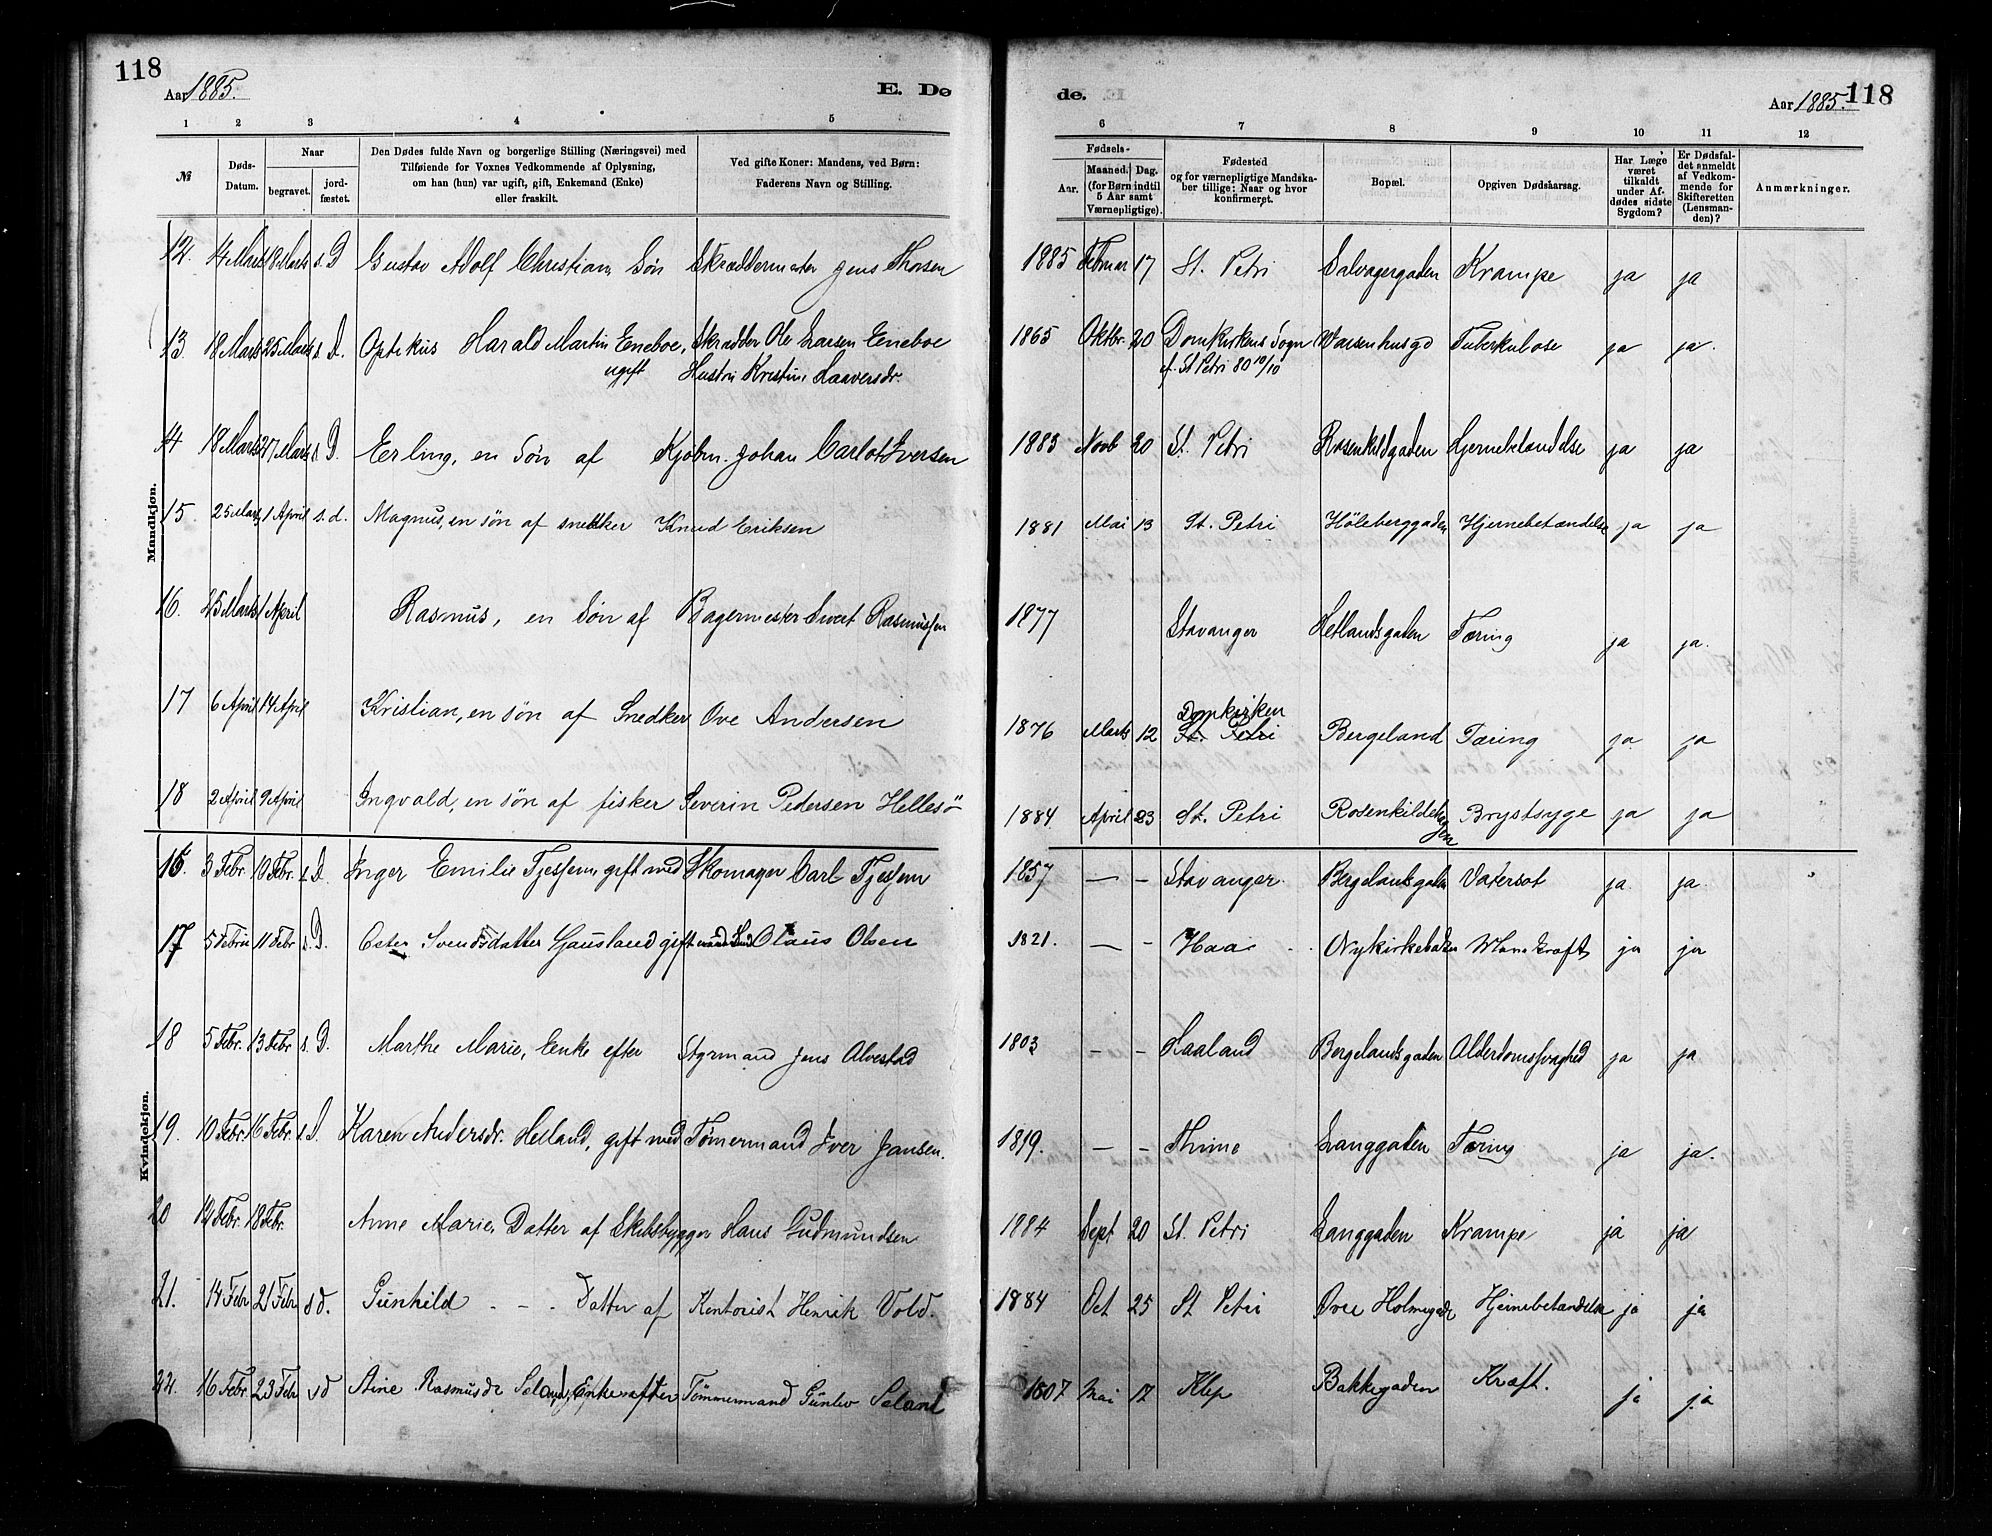 118
Aar 1885.
E. Dø
1 2 3 4 5
№
Døds-Datum.
Naar
begravet.
jord-fæstet.
Den Dødes fulde Navn og borgerlige Stilling (Næringsvei) med
Tilføiende for Voxnes Vedkommende af Oplysning,
om han (hun) var ugift, gift, Enkemand (Enke)
eller fraskilt.
Ved gifte Koner: Mandens, ved Børn:
Faderens Navn og Stilling.
Mandkjøn.
12. 14 Marts 18 Marts s. D Gustav Adolf Christian, Søn Skræddermester Jens Thorsen
13 18 Marts 25 Marts s. D. Optikus Harald Martin Eneboe, Skrædder Ole Larsen Eneboe
ugift Hustru Kristine Haaversdr.
14 18 Marts 27 Marts s. D. Erling, en Søn af Kjøbm. Johan Carlot Iversen
15 25 Marts 1 April s. d. Magnus, en søn af snedker Knud Eriksen
16. 25 Marts 1 April Rasmus, en Søn af Bagermester Sivert Rasmussen
17 6 April 14 April Kristian, en søn af Snedker Ove Andersen
18 2 April 9 April Ingvald, en søn af fisker Severin Pedersen Hellesö
Kvindekjøn.
16. 3 Febr. 10 Febr. s. D. Inger Emilie gift med Skomager Carl
17 5 Febru 11 Febr s. D. Svendsdatter gift med Olaus Olsen
18 5 Febr. 13 Febr s. D. Marthe Marie, Enke efter Styrmand Jens Alvestad
19. 10 Febr. 16 Febr. s. D. Karen Andersdr. Helland, gift med Tømermand Iver Jansen.
20 14 Febr. 18 Febr. Anne Marie, Datter af Skibsbygger Hans Gudmundsen
21. 14 Febr 21 Febr s d. Gunhild - - - Datter af Kontorist Henrik Vold.
22. 16 Febr. 23 Febr s d Aine Rasmusdr Seland, Enke efter Tömmermand Gunlev Seland
de.
Aar 1885.
118
6 7 8 9 10 11 12
Fødsels-
Aar.
Maaned. Dag.
(for Børn indtil
5 Aar samt
Værnepligtige).
Fødested
og for værnepligtige Mandska-
ber tillige: Naar og hvor
konfirmeret.
Bopæl.
Opgiven Dødsaarsag.
Har Læge
været
tilkaldt
under Af-
dødes sidste
Sygdom?
Er Dødsfal-
det anmeldt
af Vedkom-
mende for
Skifteretten
(Lensman-
den)?
Anmærkninger.
1885 Februar 17 St. Petri Salvagergaden Krampe ja ja
1865 Oktbr. 20 Domkirkens Sogn Vaisenhusgd Tuberkulose ja ja.
f. St Petri 80 10/10
1883 Novb 20 St. Petri Rosenkildgaden Hjernebetændelse ja ja
1881 Mai 13 St. Petri Höleberggaden Hjernebetændelse ja ja
1877 Stavanger Hetlandsgaden Tæring ja ja.
Domkirken
1876 Marts 12 St. Petri Bergeland Tæring ja ja
1884 April 23 St. Petri Rosenkildehagen Brystsyge ja ja
1857 — - Stavanger. Bergelandsgaden Vatersot ja ja.
1821. — - Haa Nykirkebakken Mavekræft ja ja
1803 - - Haaland Bergelandsgaden Alderdomssvaghed ja ja
1819. — - Thime Langgaden Tæring ja ja.
1884 Sept 20 St. Petri Langgaden Krampe ja ja
1884 Oct 25 St Petri Øvre Holmegade Hjernebetændelse ja ja
1807 Mai 17 Klep Bakkegaden Kræft. ja ja